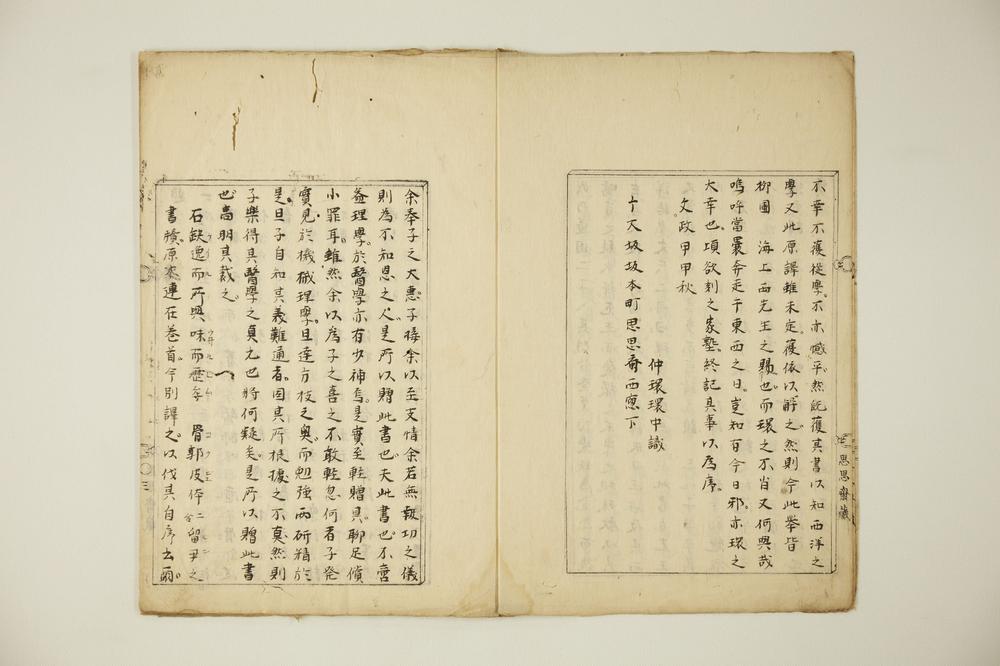 不幸不獲從學。不亦憾乎。然既獲其書以知西洋之
學又此原譯雖未定。獲依以解之。然則今此擧皆
柳圃　海上西先生之賜也。而環之不肖又何與哉
嗚呼當曩奔走于東西之日。豈知有今日邪。亦環之
大幸也。項欲刻之家塾。終記其事以爲序。
文政甲甲秋
仲環環中識
于大坂坂本町思思齋西窓下
思思齋藏
余奉子之大惠。子接余以至交情余若無報功之儀
則爲不知恩之人。是所以贈此書也。夫此書也。不啻
益理學。於醫學亦有少補焉。是實至輕贈具。聊足償
小罪耳。雖然余以爲子之喜之不敢輕忽何者子発
實見於機械理學。且達方技之奧。而勉強而研精於
是。且子自知其義難通者。因其所根據之不眞。然則
子樂得其醫學之眞尤也將何疑矣。是所以贈此書
也高明其裁之。
石鈌逸而所與味而歷手　骨郭皮倅二留尹之
書牘。原寨連在卷首。今別譯之。以伐其自序云爾。
〇三